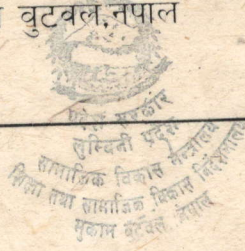 वुटवल,नपाल
प्रदेश सरकार
लुम्बिनी प्रदेश
सामाजिक विकास मन्त्रालय
शिक्षा तथा सामाजिक विकास निर्देशनालय
मुकाम बुटवल, नेपाल